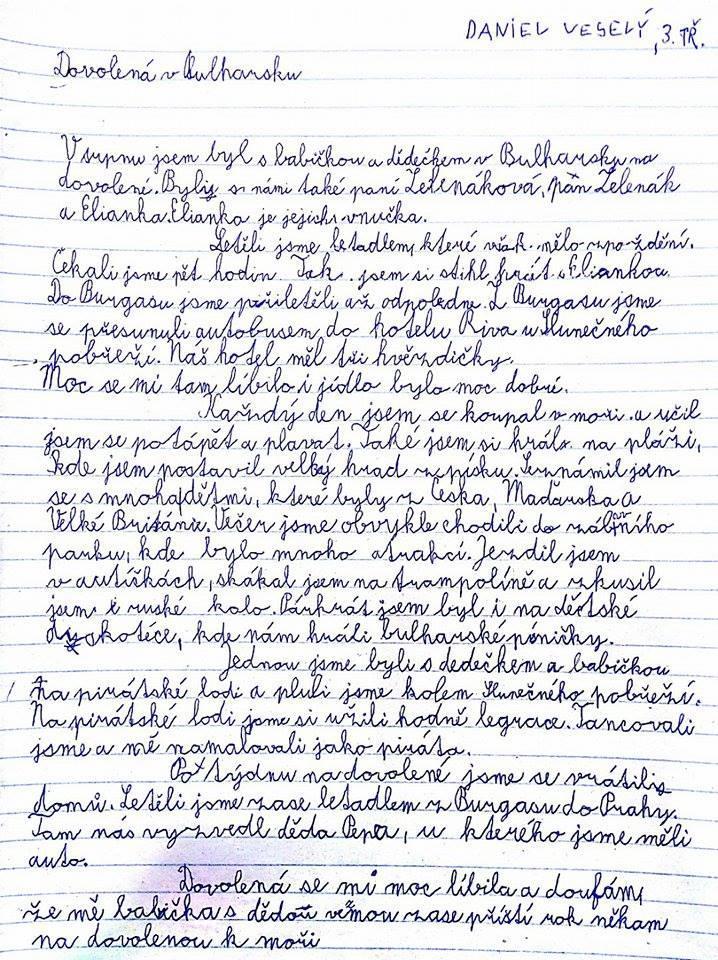 DANIEL VESELÝ, 3. TŘ.
Dovolená v Bulharsku
V srpnu jsem byl s babičkou a dědečkem v Bulharsku na
dovolení. Byli s námi také paní Zelenáková, pán Zelenák
a Elianka. Elianka je jejich vnučka.
Letěli jsme letadlem, které však mělo zpoždění.
Čekali jsme pět hodin. Tak jsem si stihl hrát s Eliankou.
Do Burgasu jsme přiletěli až odpoledne. Z Burgasu jsme
se přesunuli autobusem do hotelu Riva u Slunečného
pobřeží. Náš hotel měl tři hvězdičky.
Moc se mi tam líbilo i jídlo bylo moc dobré.
Každý den jsem se koupal v moři a učil
jsem se potápět a plavat. Také jsem si hrál na pláži,
kde jsem postavil velký hrad z písku. Seznámil jsem
se s mnoha dětmi, které byly z Česka, Maďarska a
Velké Británie. Večer jsme obvykle chodili do zábavního
parku, kde bylo mnoho atrakcí. Jezdil jsem
v autíčkách, skákal jsem na trampolíně a zkusil
jsem i ruské kolo. Párkrát jsem byl i na dětské
dyskotéce, kde nám hráli bulharské písničky.
Jednou jsme byli s dedečkem a babičkou
na pirátské lodi a pluli jsme kolem Slunečného pobřeží.
Na pirátské lodi jsme si užili hodně legrace. Tancovali
jsme a mě namalovali jako piráta.
Po týdnu na dovolené jsme se vrátili
domů. Letěli jsme zase letadlem z Burgasu do Prahy.
Tam nás vyzvedl děda Pepa, u kterého jsme měli
auto.
Dovolená se mi moc líbila a doufám,
že mě babička s dědou vemou zase příští rok někam
na dovolenou k moři